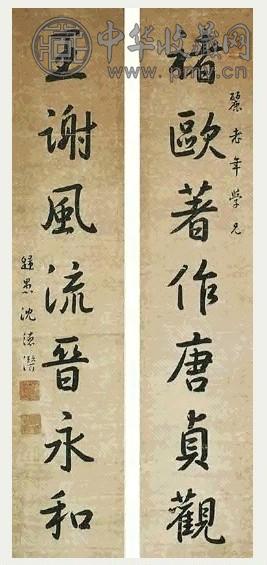 中华收藏网
老年學兄
褚歐著作唐貞觀
王謝風流晉永和
歸愚沈德潛